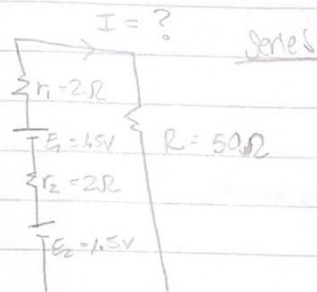 I = ?
Series
r₁=2Ω
E₁=1.5V
R = 50Ω
r₂=2Ω
E₂=1.5V